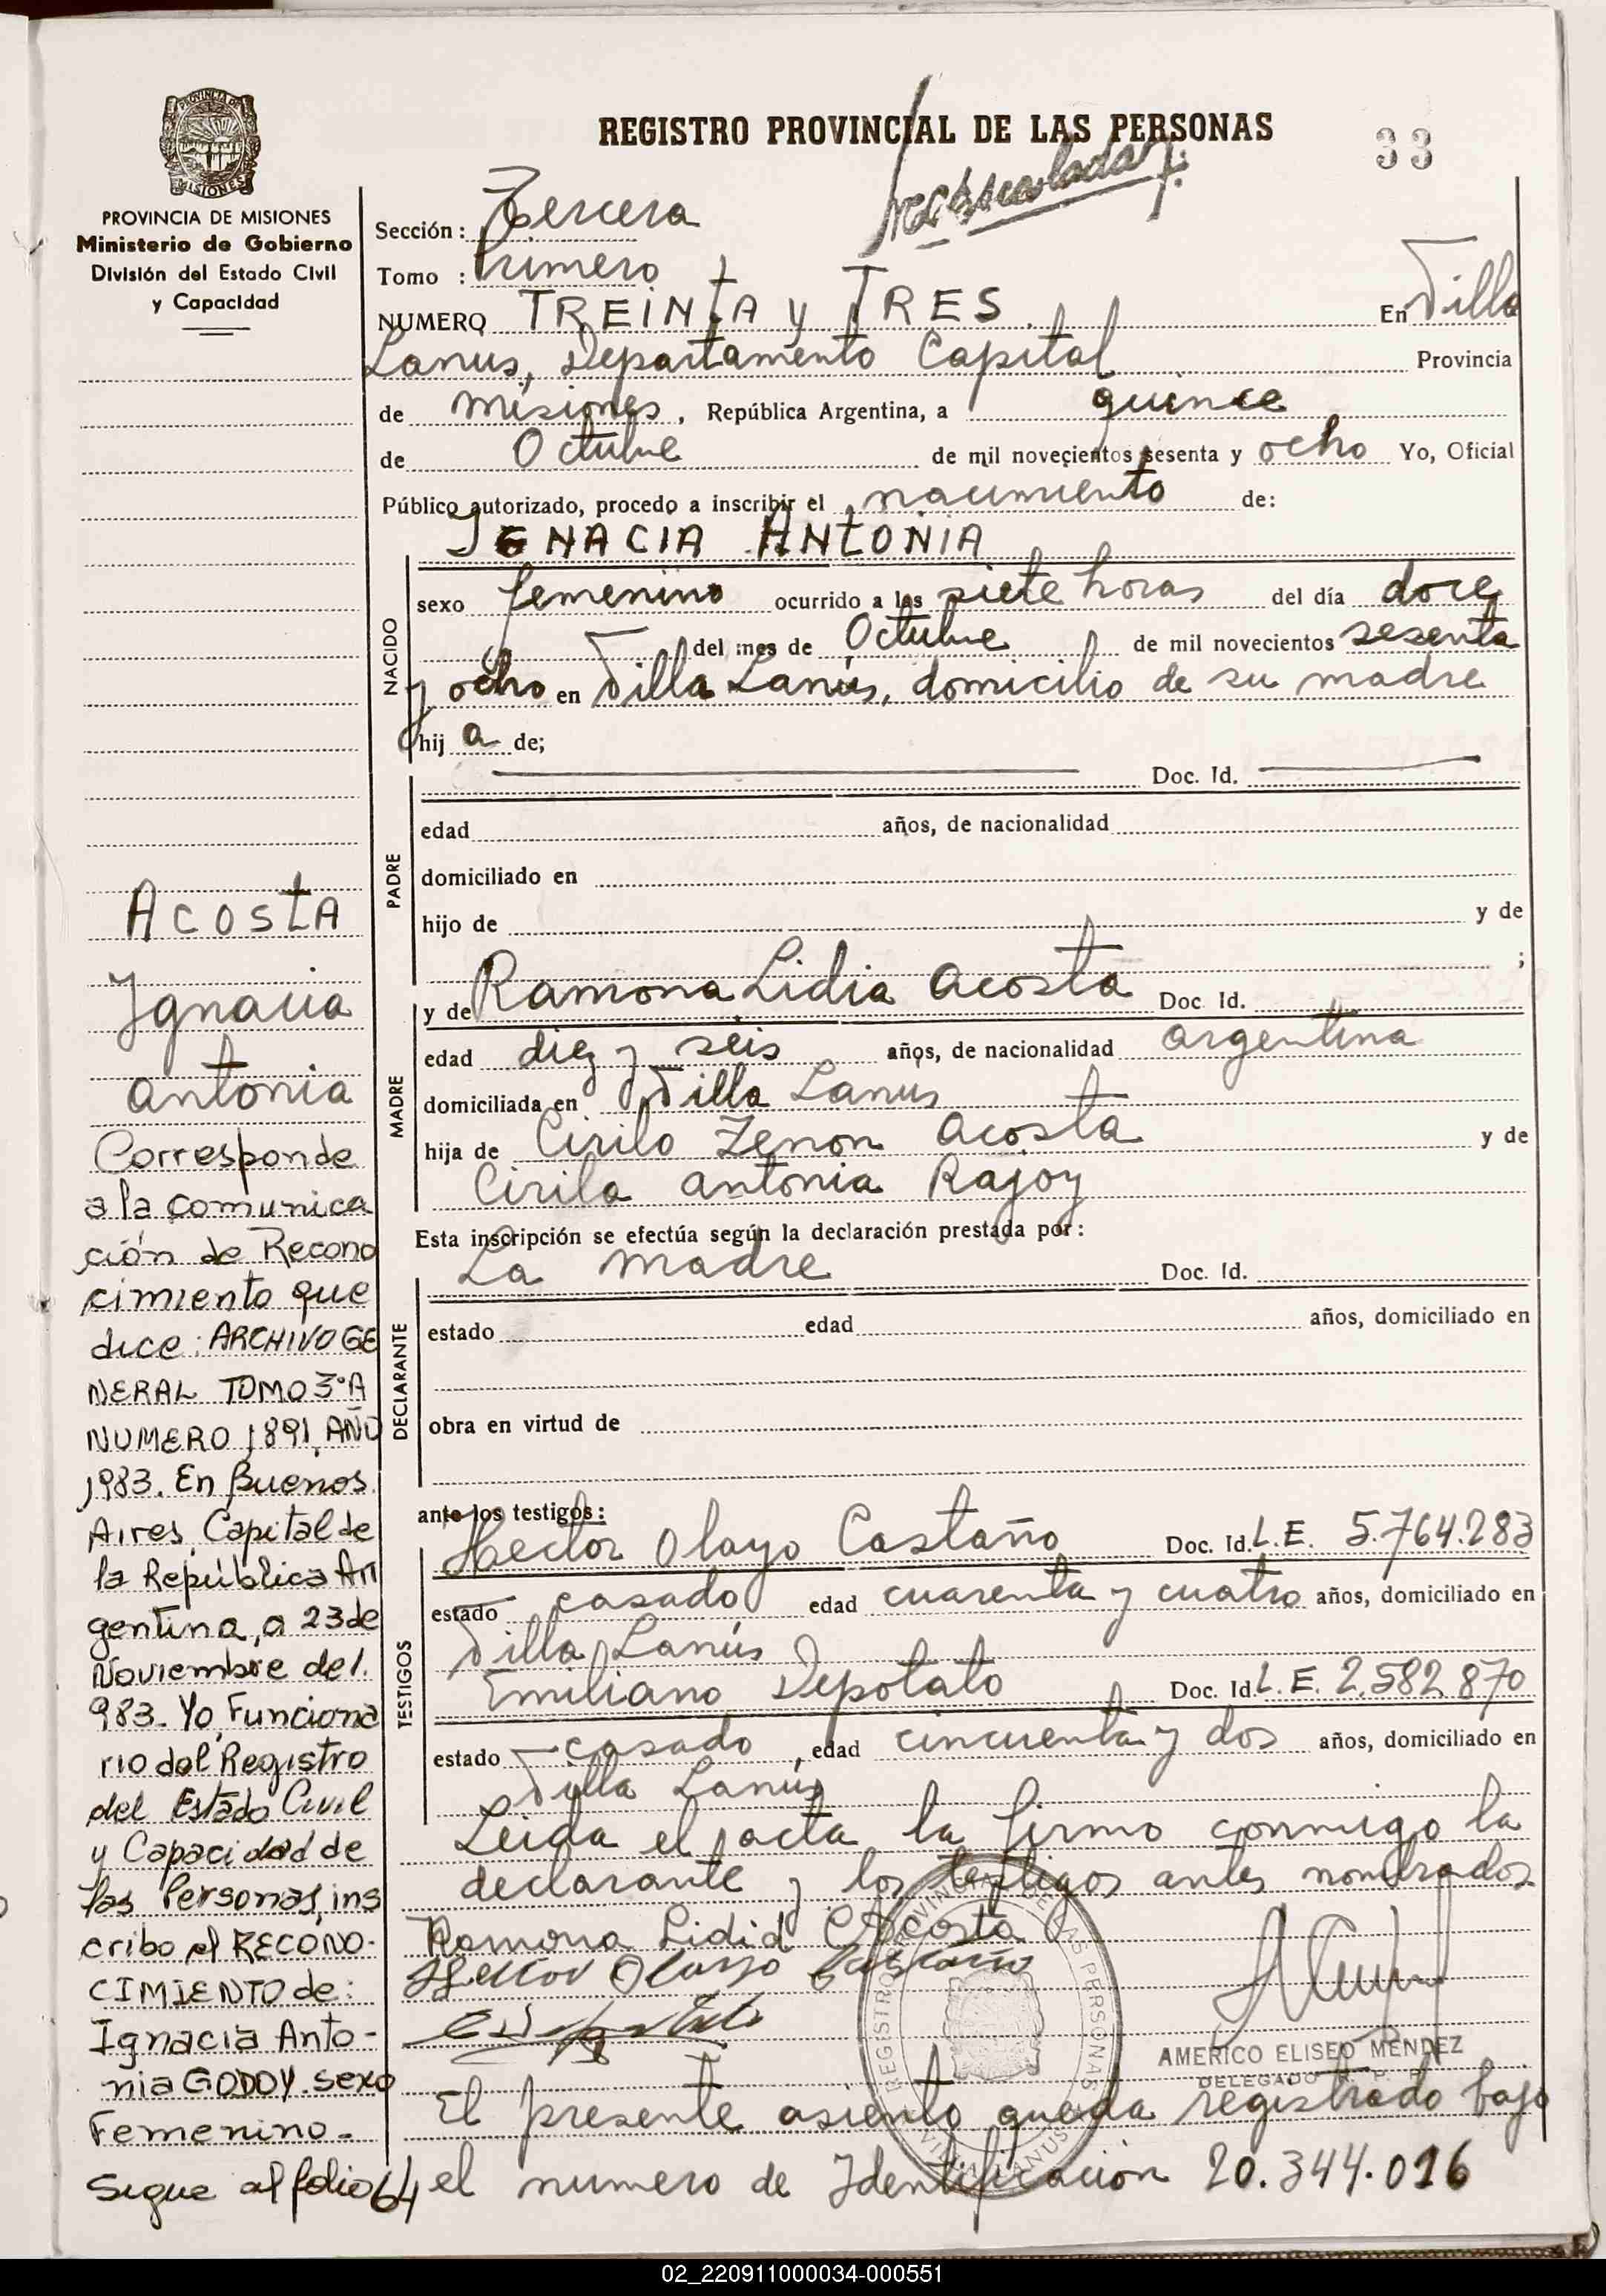 REGISTRO PROVINCIAL DE LAS PERSONAS
33
PROVINCIA DE MISIONES
Ministerio de Gobierno
División del Estado Civil
y Capacidad
Sección: Tercera
Tomo : Primero
NUMERO TREINTA y TRES En Villa
Lanús, Departamento Capital Provincia
de Misiones, República Argentina, a quince
de Octubre de mil novecientos sesenta y ocho Yo, Oficial
Público autorizado, procedo a inscribir el nacimiento de:
IGNACIA ANTONIA
NACIDO
sexo femenino ocurrido a las siete horas del día doce
del mes de Octubre de mil novecientos sesenta
y ocho en Villa Lanús, domicilio de su madre
hij a de;
Doc. Id.
PADRE
edad años, de nacionalidad
domiciliado en
hijo de y de
;
MADRE
y de Ramona Lidia Acosta Doc. Id.
edad diez y seis años, de nacionalidad argentina
domiciliada en Villa Lanus
hija de Cirilo Zenon Acosta y de
Cirila Antonia Rajoy
Esta inscripción se efectúa según la declaración prestada por:
La madre Doc. Id.
DECLARANTE
estado edad años, domiciliado en
obra en virtud de
ante los testigos:
TESTIGOS
Hector Olayo Castaño Doc. Id. L.E. 5.764.283
estado casado edad cuarenta y cuatro años, domiciliado en
Villa Lanús
Emiliano Depotato Doc. Id. L.E. 2.582.870
estado casado, edad cincuenta y dos años, domiciliado en
Villa Lanús
Leida el acta la firmo conmigo la
declarante y los testigos antes nombrados.
Ramona Lidia Acosta
Hector Olayo Castaño
AMERICO ELISEO MENDEZ
DELEGADO R. P. P.
REGISTRO PROVINCIAL DE LAS PERSONAS
VILLA LANUS
El presente asiento queda registrado bajo
el numero de Identificación 20.344.016
ACOSTA
Ignacia
Antonia
Corresponde
a la comunica
ción de Recono
cimiento que
dice: ARCHIVO GE
NERAL TOMO 3°A
NUMERO 1891, AÑO
1983. En Buenos
Aires, Capital de
la República Ar
gentina, a 23 de
Noviembre de 1.
983. Yo, Funciona
rio del Registro
del Estado Civil
y Capacidad de
las Personas, ins
cribo el RECONO-
CIMIENTO de:
Ignacia Anto-
nia GODOY. sexo
Femenino.-
Sigue al folio 64
02_220911000034-000551